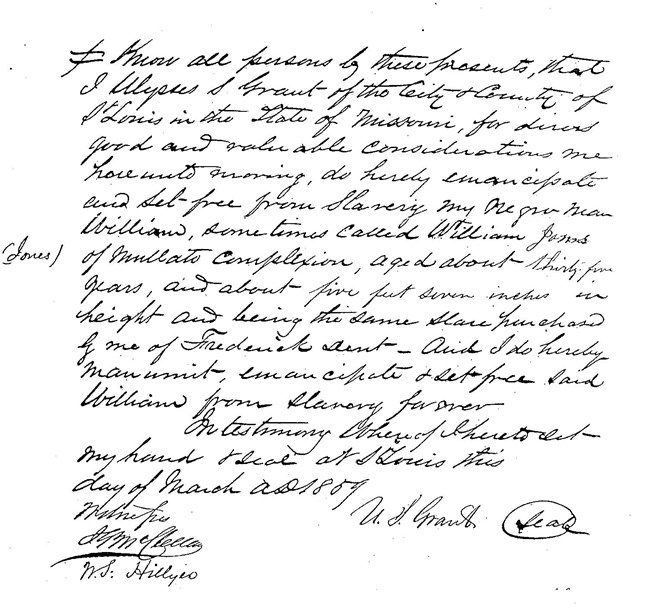 Know all persons by these presents, that
I Ulysses S Grant of the City & County of
St Louis in the State of Missouri, for divers
good and valuable considerations me
hereunto moving, do hereby emancipate
and set free from Slavery my Negro man
William, sometimes called William Jones
(Jones)
of Mullato complexion, aged about thirty-five
years, and about five feet seven inches in
height and being the same slave purchased
by me of Frederick Dent - And I do hereby
manumit, emancipate & set free said
William from slavery forever
In testimony Whereof I hereto set
my hand & seal at St Louis this
day of March AD 1859
Witnesses
U. S. Grant. Seal
J G McClellan
W. S. Hillyer